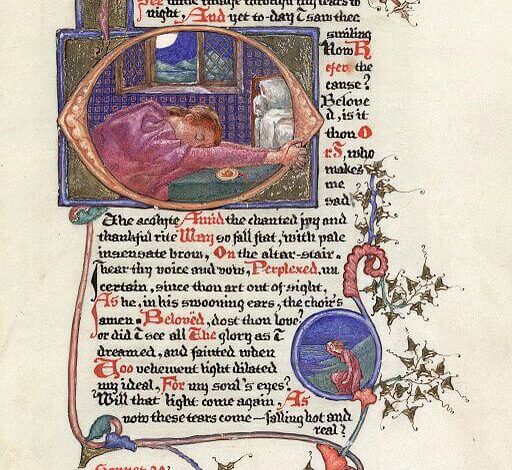 see thine image through my tears to
night, And yet to-day I saw thee
smiling
How R
efer the
cause?
Belove
d, is it
thou O
r I, who
makes
me
sad
The acolyte Amid the chanted joy and
thankful rite May so fall flat, with pale
insensate brow, On the altar-stair.
I hear thy voice and vow, Perplexed, un
certain, since thou art out of sight,
As he, in his swooning ears, the choir's
amen. Belovëd, dost thou love?
or did I see all The glory as I
dreamed, and fainted when
Too vehement light dilated
my ideal, For my soul's eyes?
Will that light come again, As
now these tears come—falling hot and
real?
Sonnet